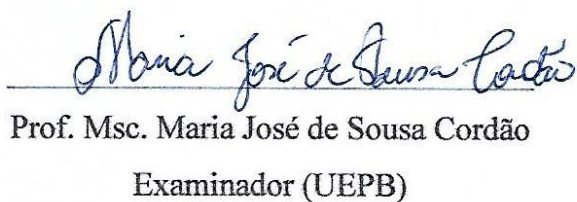 Maria José de Sousa Cordão
Prof. Msc. Maria José de Sousa Cordão
Examinador (UEPB)